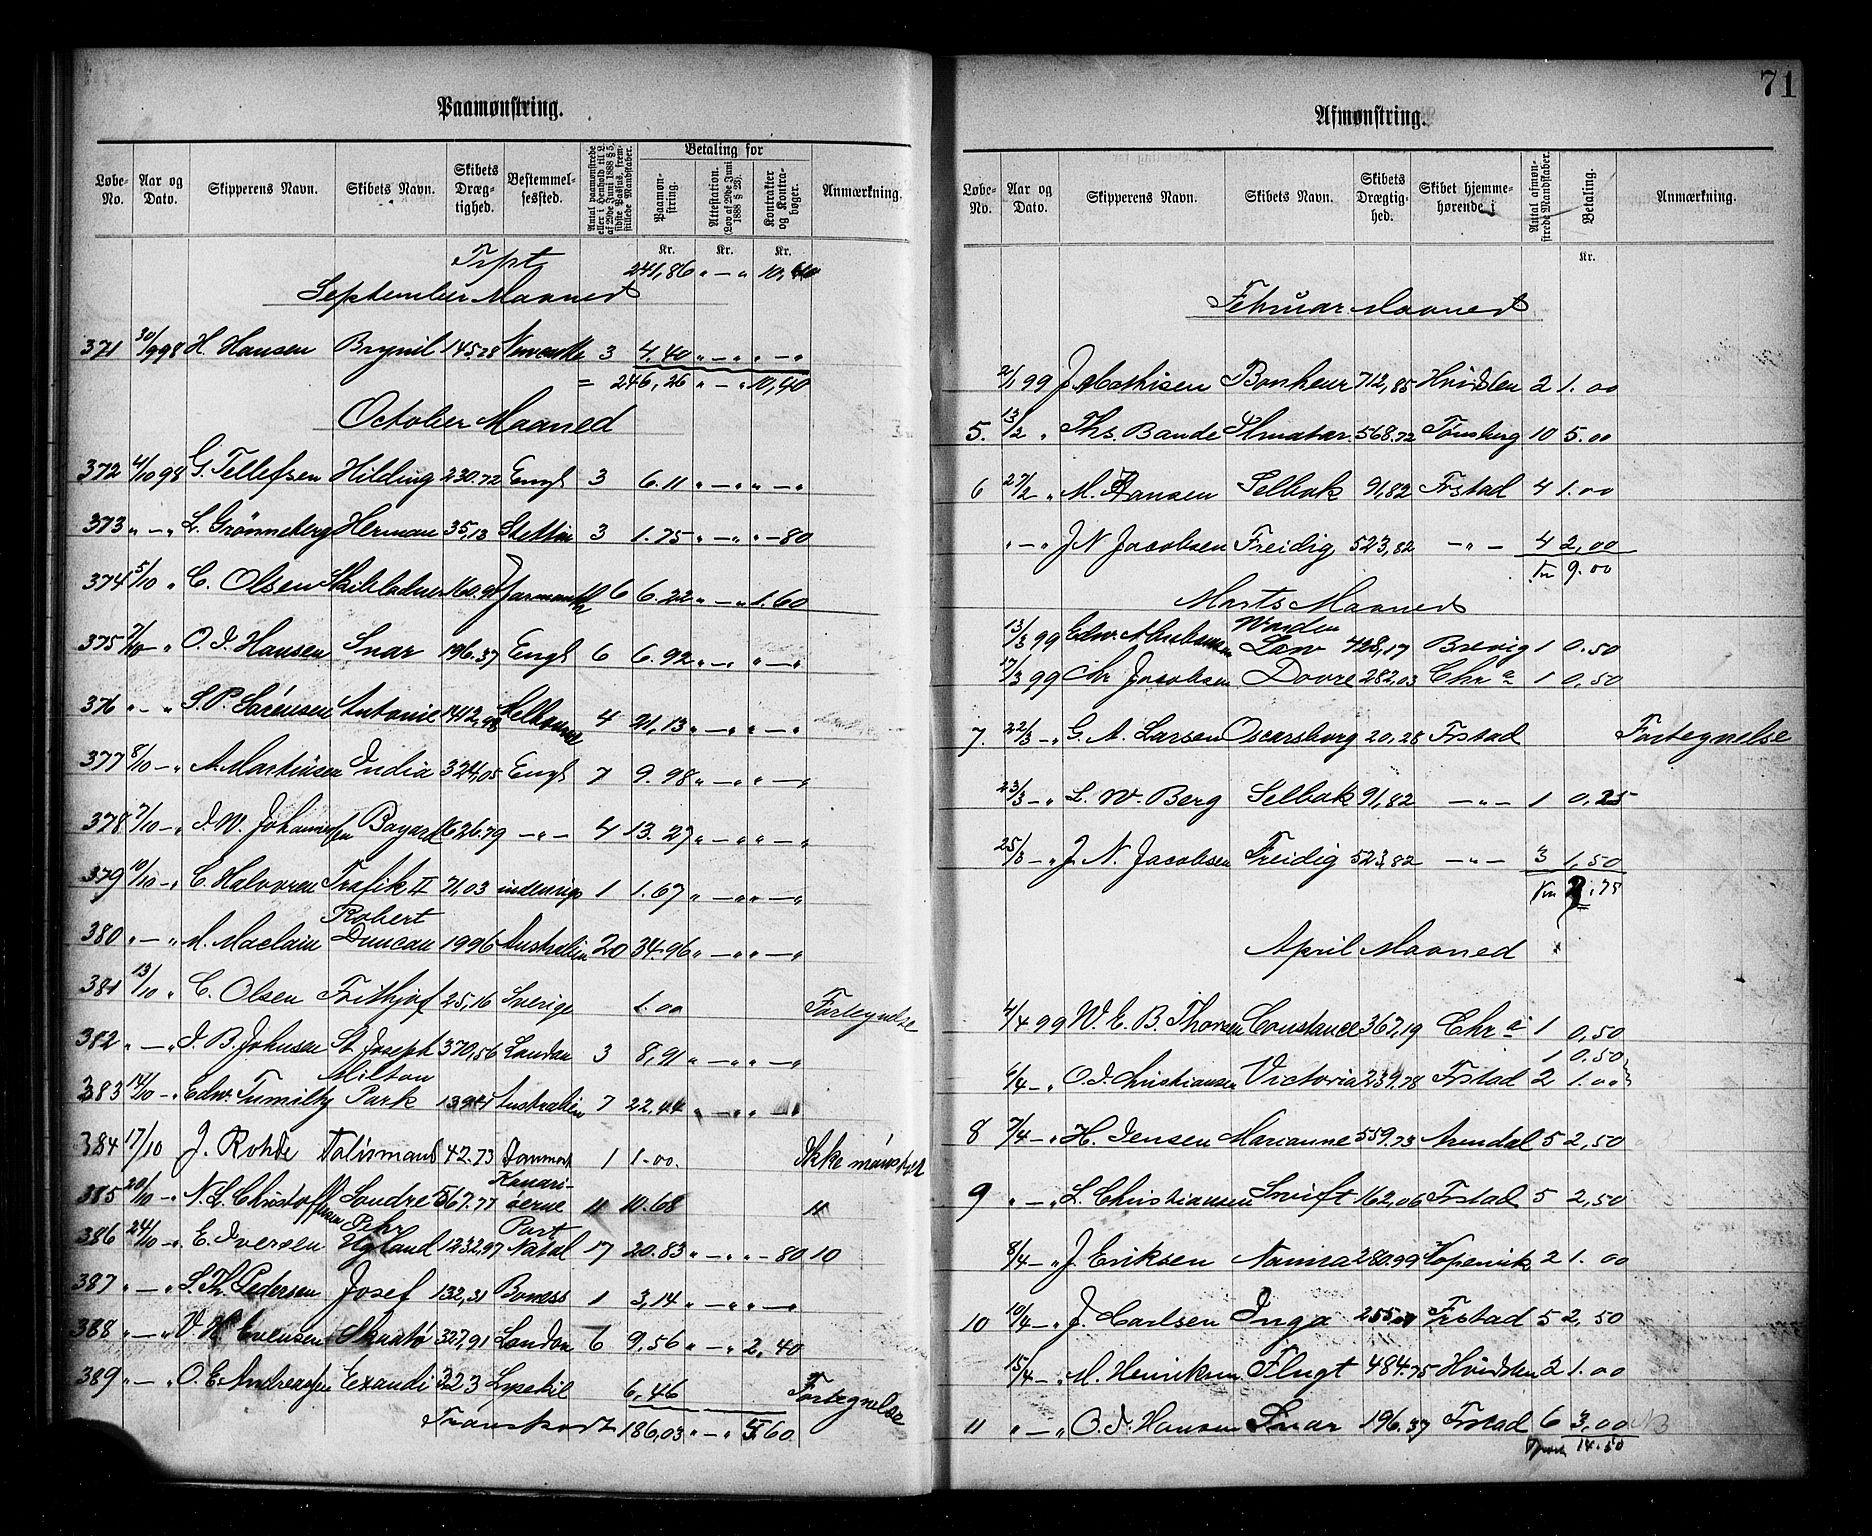 71
Paamønstring.
Løbe-No. Aar og Dato. Skipperens Navn. Skibets Navn. Skibets Dræg-tighed. Bestemmel-sessted. Antal paamønstrede eller i Henhold til L. af 29de Juni 1888 § 5, sidste Passus, frem-stillede Mandskaber. Betaling for Paamøn-string. Attestation. (Lov af 29de Juni 1888 § 23). Kontrakter og Kontra-bøger. Anmærkning.
Kr. Kr. Kr.
Trspt 241,86 " — " 10,40
September Maaned
371 30/9 98 H. Hansen Brynil 145.28 Newcastle 3 4.40 " — " " — "
= 246,26 " — " 10,40
October Maaned
372 4/10 98 G. Tellefsen Hilding 230.72 Engl 3 6.11 " — " " — "
373 " — " L. Grønneberg Herman 35,13 Stettin 3 1.75 " — " " — 80
374 5/10 " C. Olsen Skibladner 160.91 Jarmouth 6 6.22 " — " 1.60
375 7/10 — " O. J. Hansen Snar 196.37 Engl 6 6.92 " — " " — "
376 " — " S. P. Sørensen Antonie 1412,98 Melbourne 4 21,13 " — " " — "
377 8/10 — " A. Martinsen India 324,05 Engl 7 9.98 " — " " — "
378 7/10 — " J. W. Johannesen Bayard 626.79 — " — 4 13.27 " — " " — "
379 10/10 — " C. Halvorsen Trafik II 71.03 indenrigs 1 1.67 " — " " — "
380 " — " M. Maclain Robert Duncan 1996 Australien 20 34.96 " — " " — "
381 13/10 " C. Olsen Frithjof 25,16 Sverige 1.00 Fortegnelse
382 " — " J. B. Johnsen St Joseph 370,56 London 3 8,91 " — " " — "
383 14/10 — " Edw. Tumilty Milton Park Australien 7 22.44 " — " " "
384 17/10 J. Rohde Talismand 42.73 Danmark 1 1.00. Ikke mønstret
385 20/10 — " N. L. Christoffersen Londre 567.77 Kanari-øerne 11 10.68 11
386 24/10 — " E. Iversen Pehr Ugland 1232,97 Port Natal 17 20.83 " — " " — 80 10
387 " — " S. Th. Pedersen Josef 132,31 Boness 1 3,14 " — " " — "
388 " — " Evensen 327,91 London 6 9,56 " — " 2,40
389 " — " O. E. Andreassen Exaudi 323 Lysekil 6,46 Fortegnelse
Transport 186,03 " — " 5.60
Afmønstring.
Løbe-No. Aar og Dato. Skipperens Navn. Skibets Navn. Skibets Drægtig-hed. Skibet hjemme-hørende i Antal afmøn-strede Mandskaber. Betaling. Anmærkning.
Kr.
Februar Maaned
2/1 99 J. Mathisen Bonheur 712,85 Hvidsten 2 1.00
5. 13/2 " Ths. Bande 568.72 Tønsberg 10 5.00
6 27/2 " M. Hansen Selbak 91,82 Frstad 4 1.00
" — " J N Jacobsen Freidig 523,82 — " — 4 2,00
Kr 9.00
Marts Maaned
13/3 99 Edw. Abrahamsen Low 428,17 Brevig 1 0.50
17/3 99 Chr Jacobsen Dovre 282.03 Chr a 1 0,50
7. 22/3 — " G. A. Larsen Oscarsborg 20,28 Frstad Fortegnelse
23/3 — " L. W. Berg Selbak 91,82 — " — 1 0,25
25/3 — " J. N. Jacobsen Freidig 523,82 — " — 3 1,50
Kr 2.75
April Maaned
4/4 99 W. E. B. Thorsen Constance 367,19 Chr a 1 0,50
1 0.50
6/4 — " O. J. Christiansen Victoria 239.78 Frstad 2 1.00
8 7/4 — " H. Jensen Marianne 559.73 Arendal 5 2,50
9 " — " L. Christiansen Swift 162,06 Frstad 5 2,50
8/4 — " J. Eriksen Nanna 280.99 Kopervik 2 1.00
10 10/4 — " J. Carlsen Inga Frstad 5 2,50
15/4 — " M. Henriksen Flugt 484.75 Hvidsten 2 1.00
11 " — " O. J. Hansen Snar 196.37 Frstad 6 3,00
14.50